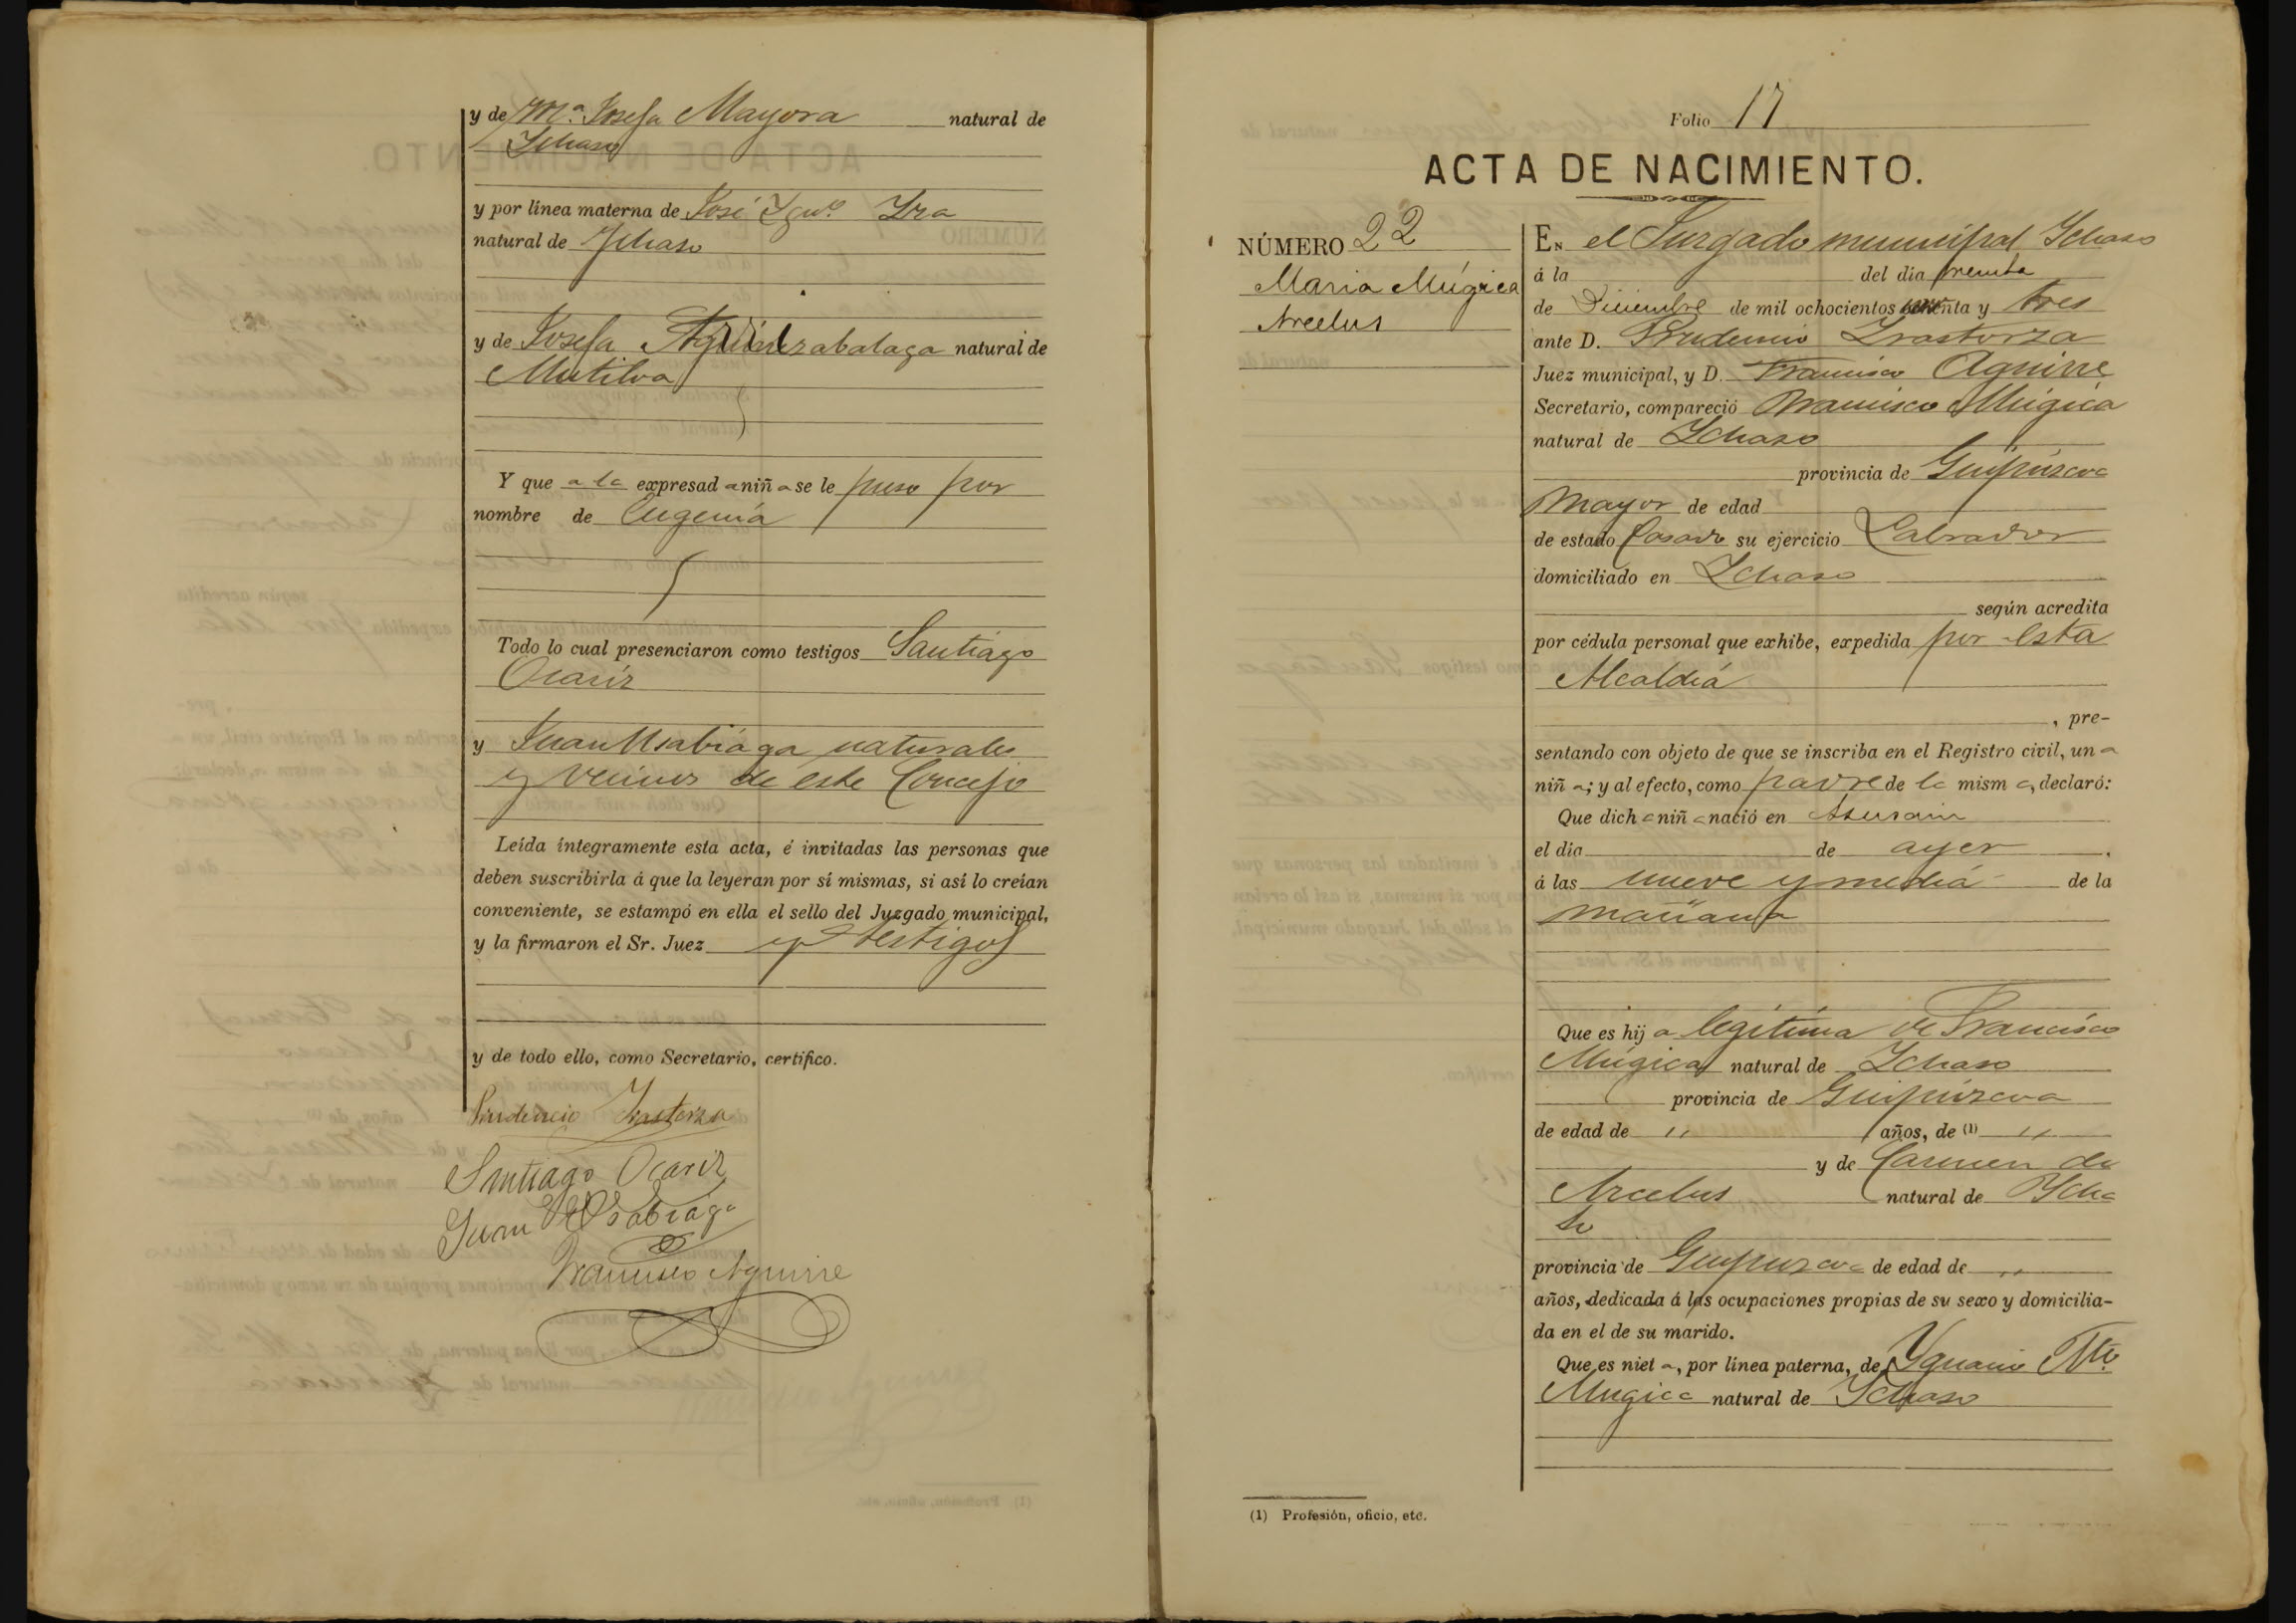 y de Mª Josefa Mayora natural de
Ichaso
y por línea materna de José Ignº Ira
natural de Ichaso
y de Josefa zabalaga natural de
Mutiloa
Y que a la expresad a niñ a se le puso por
nombre de Eugenia
Todo lo cual presenciaron como testigos Santiago
Ocariz
y Juan Usabiaga naturales
y vecinos de este Concejo
Leída íntegramente esta acta, é invitadas las personas que
deben suscribirla á que la leyeran por sí mismas, si así lo creían
conveniente, se estampó en ella el sello del Juzgado municipal,
y la firmaron el Sr. Juez y testigos
y de todo ello, como Secretario, certifico.
Prudencio Irastorza
Santiago Ocariz
Juan Usabiaga
Francisco Aguirre
Folio 17
ACTA DE NACIMIENTO.
NÚMERO 22
Maria Múgica
Arcelus
En el Juzgado municipal Ichaso
á la del día treinta
de Diciembre de mil ochocientos noventa y tres
ante D. Prudencio Irastorza
Juez municipal, y D. Francisco Aguirre
Secretario, compareció Francisco Múgica
natural de Ichaso
provincia de Guipúzcoa
mayor de edad
de estado Casado su ejercicio Labrador
domiciliado en Ichaso
según acredita
por cédula personal que exhibe, expedida por esta
Alcaldía
, pre-
sentando con objeto de que se inscriba en el Registro civil, un a
niñ a; y al efecto, como padre de la mism a, declaró:
Que dich a niñ a nació en
el día de ayer.
á las nueve y media de la
mañana
Que es hij a legítima de Francisco
Múgica natural de Ichaso
provincia de Guipúzcoa
de edad de " años, de (1) "
y de Carmen de
Arcelus natural de Icha
so
provincia de Guipuzcoa de edad de "
años, dedicada á las ocupaciones propias de su sexo y domicilia-
da en el de su marido.
Que es niet a, por línea paterna, de Ygnacio Mª
Mugica natural de Ichaso
(1) Profesión, oficio, etc.